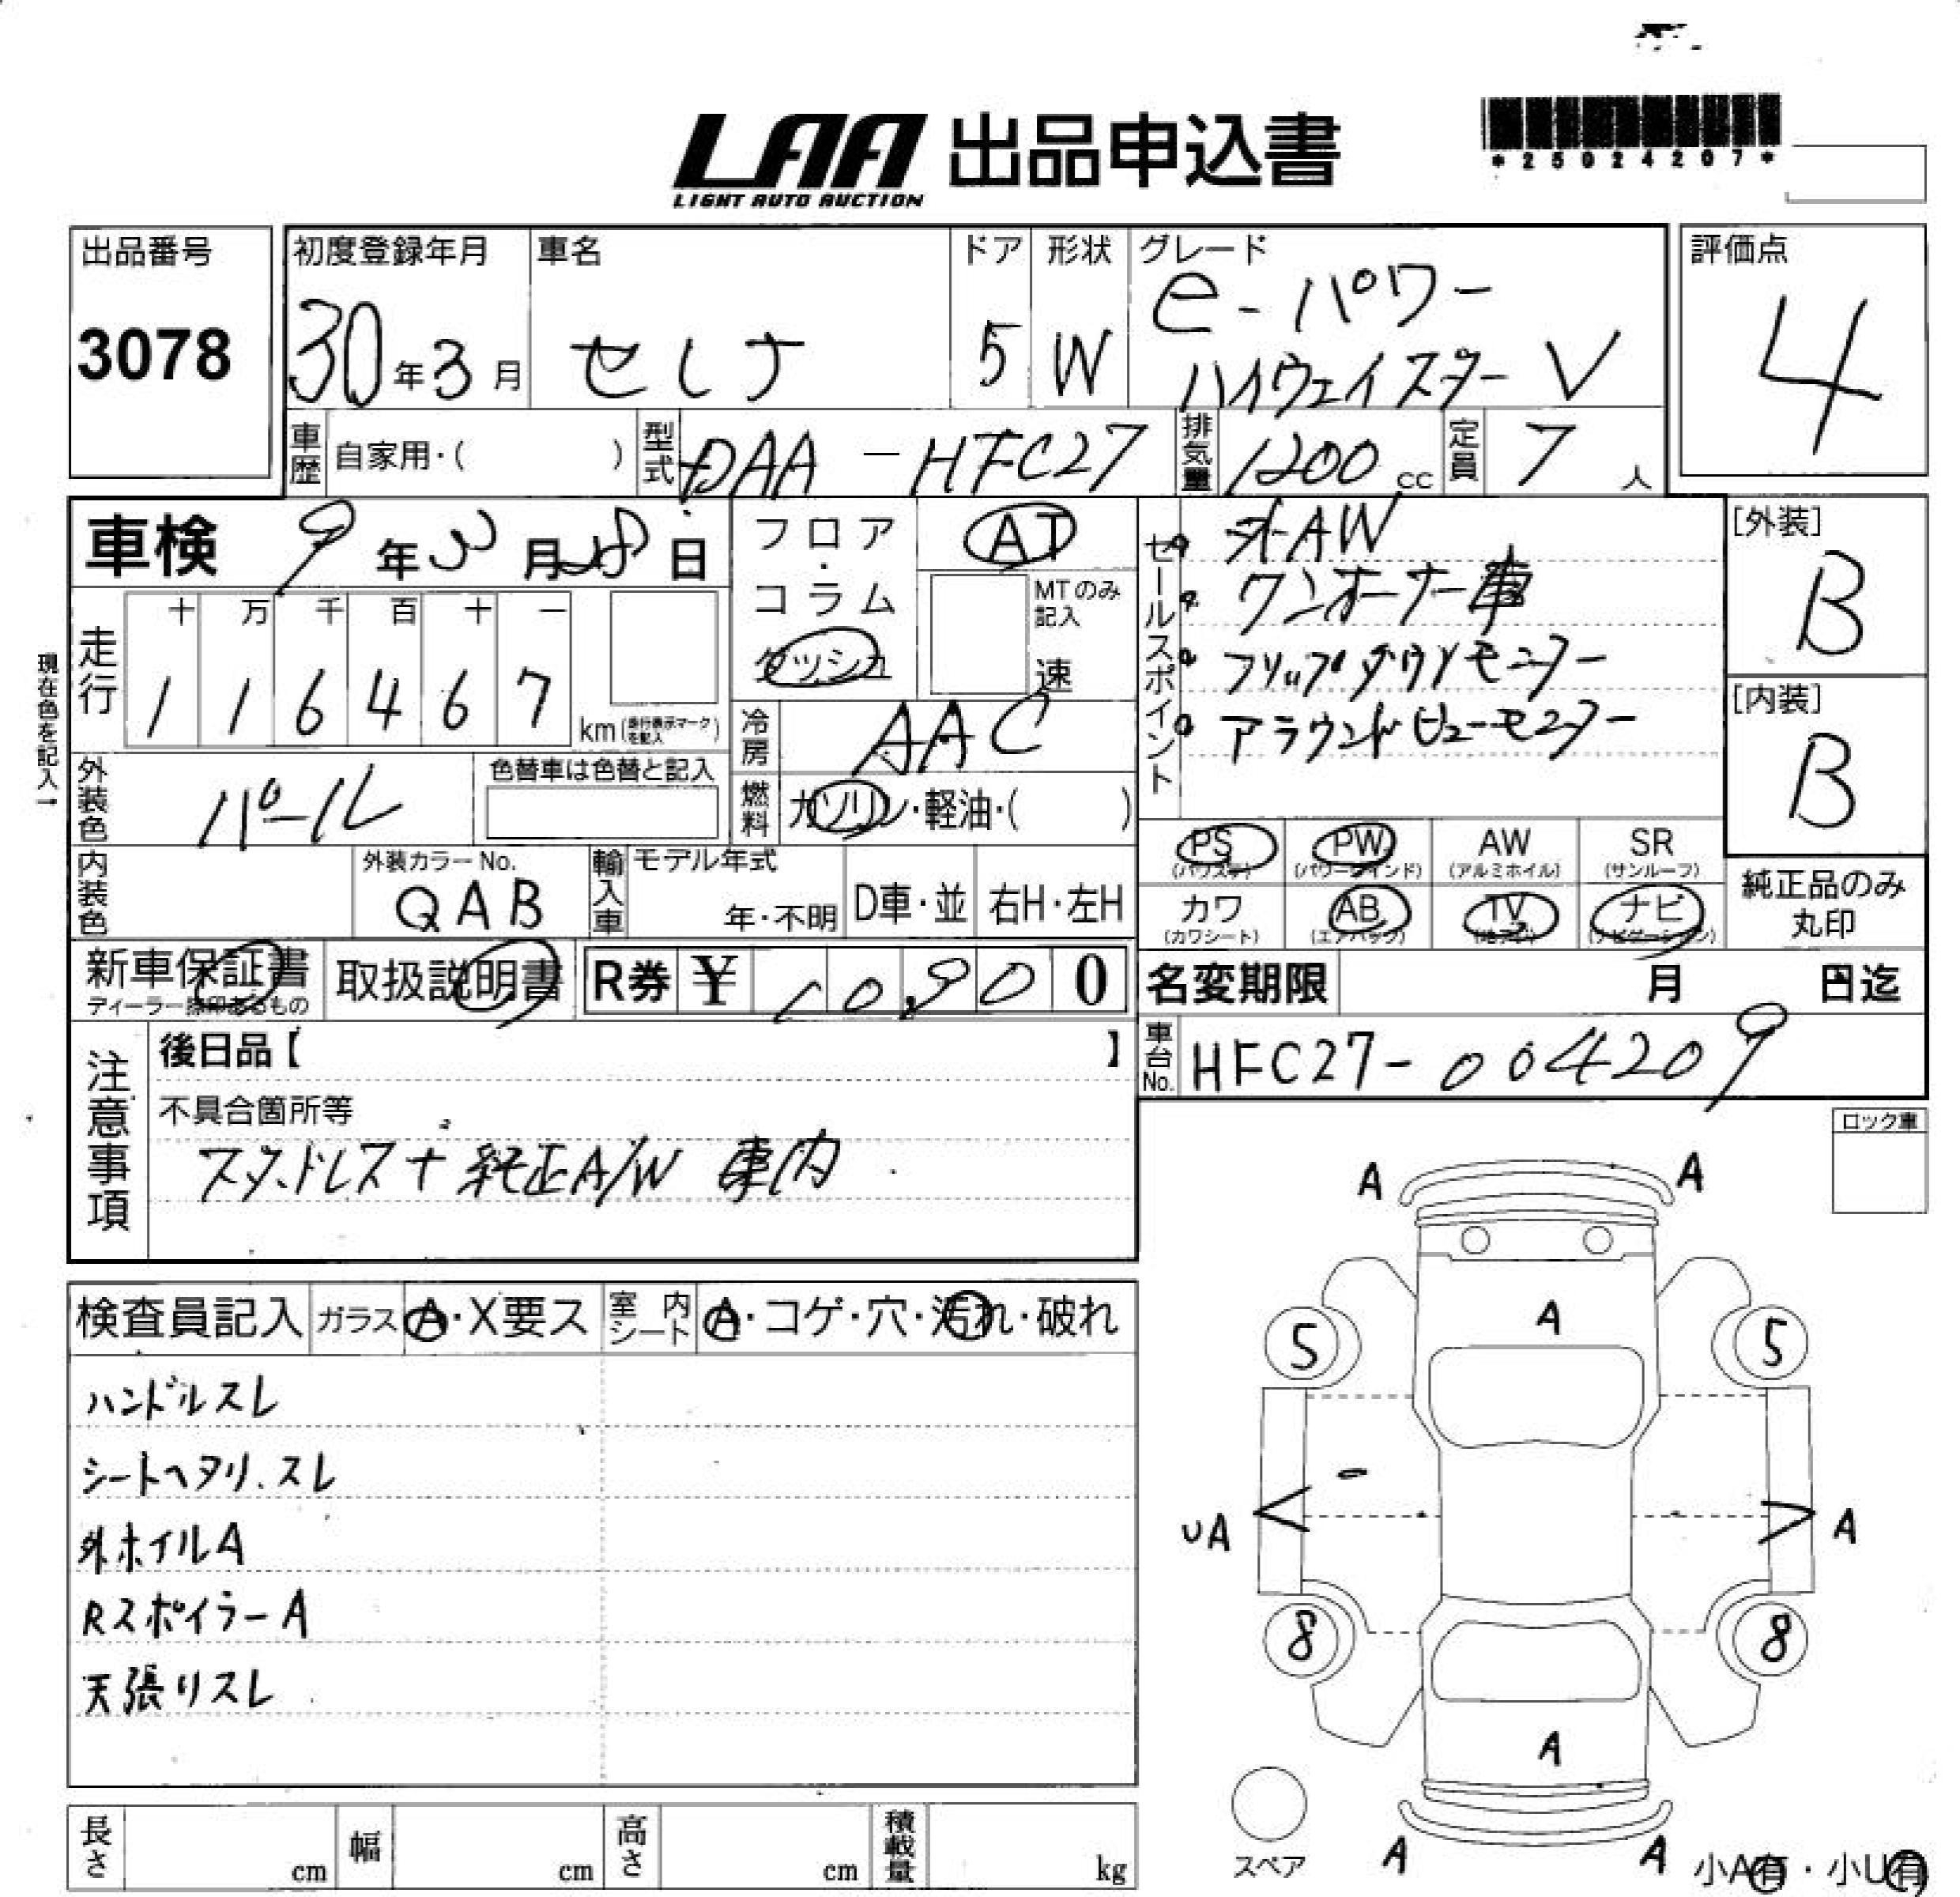 LAA 出品申込書
LIGHT AUTO AUCTION
*25024207*
出品番号
3078
初度登録年月
30年3月
車名
セレナ
ドア
5
形状
W
グレード
e-パワー
ハイウェイスター V
評価点
4
車歴
自家用・( )
型式
DAA-HFC27
排気量
1200 cc
定員
7 人
車検 9年3月28日
フロア
・
コラム
ダッシュ
AT
MTのみ
記入
速
セールスポイント
外AW
ワンオーナー車
フリップダウンモニター
アラウンドビューモニター
[外装]
B
[内装]
B
現在色を記入→
走行
十 万 千 百 十 一
1 1 6 4 6 7
km(走行表示マークを記入)
冷房
AAC
燃料
ガソリン・軽油・( )
外装色
パール
色替車は色替と記入
内装色
外装カラーNo.
QAB
輸入車
モデル年式
年・不明
D車・並
右H・左H
PS
(パワステ)
PW
(パワーウインド)
AW
(アルミホイル)
SR
(サンルーフ)
カワ
(カワシート)
AB
(エアバッグ)
TV
ナビ
(ナビゲーション)
純正品のみ
丸印
新車保証書
ディーラー捺印あるもの
取扱説明書
R券 ¥ 10,900
名変期限 月 日迄
車台No.
HFC27-004209
注意事項
後日品【 】
不具合箇所等
スタッドレス+純正A/W 車内
ロック車
検査員記入
ガラス
A・X要ス
室内シート
A・コゲ・穴・汚れ・破れ
ハンドルスレ
シートヘタリ.スレ
外ホイルA
RスポイラーA
天張リスレ
A A
A
5 5
UA A
8 8
A
スペア
A A
小A有・小U有
長さ cm
幅 cm
高さ cm
積載量 kg